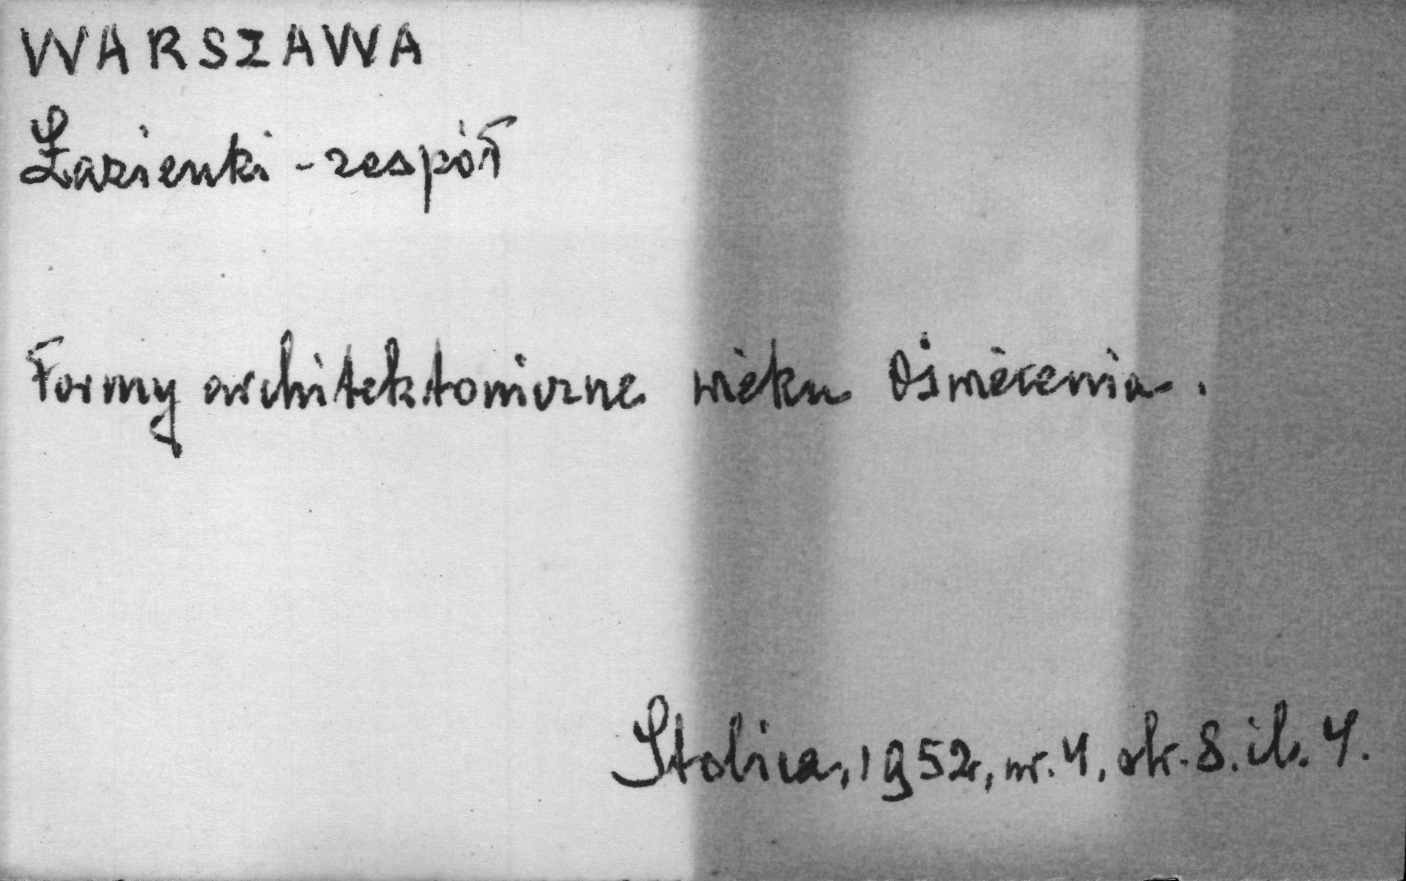 WARSZAWA
Łazienki - zespół
Formy architektoniczne wieku Oświecenia.
Stolica, 1952, nr. 4, str. 8. il. 4.